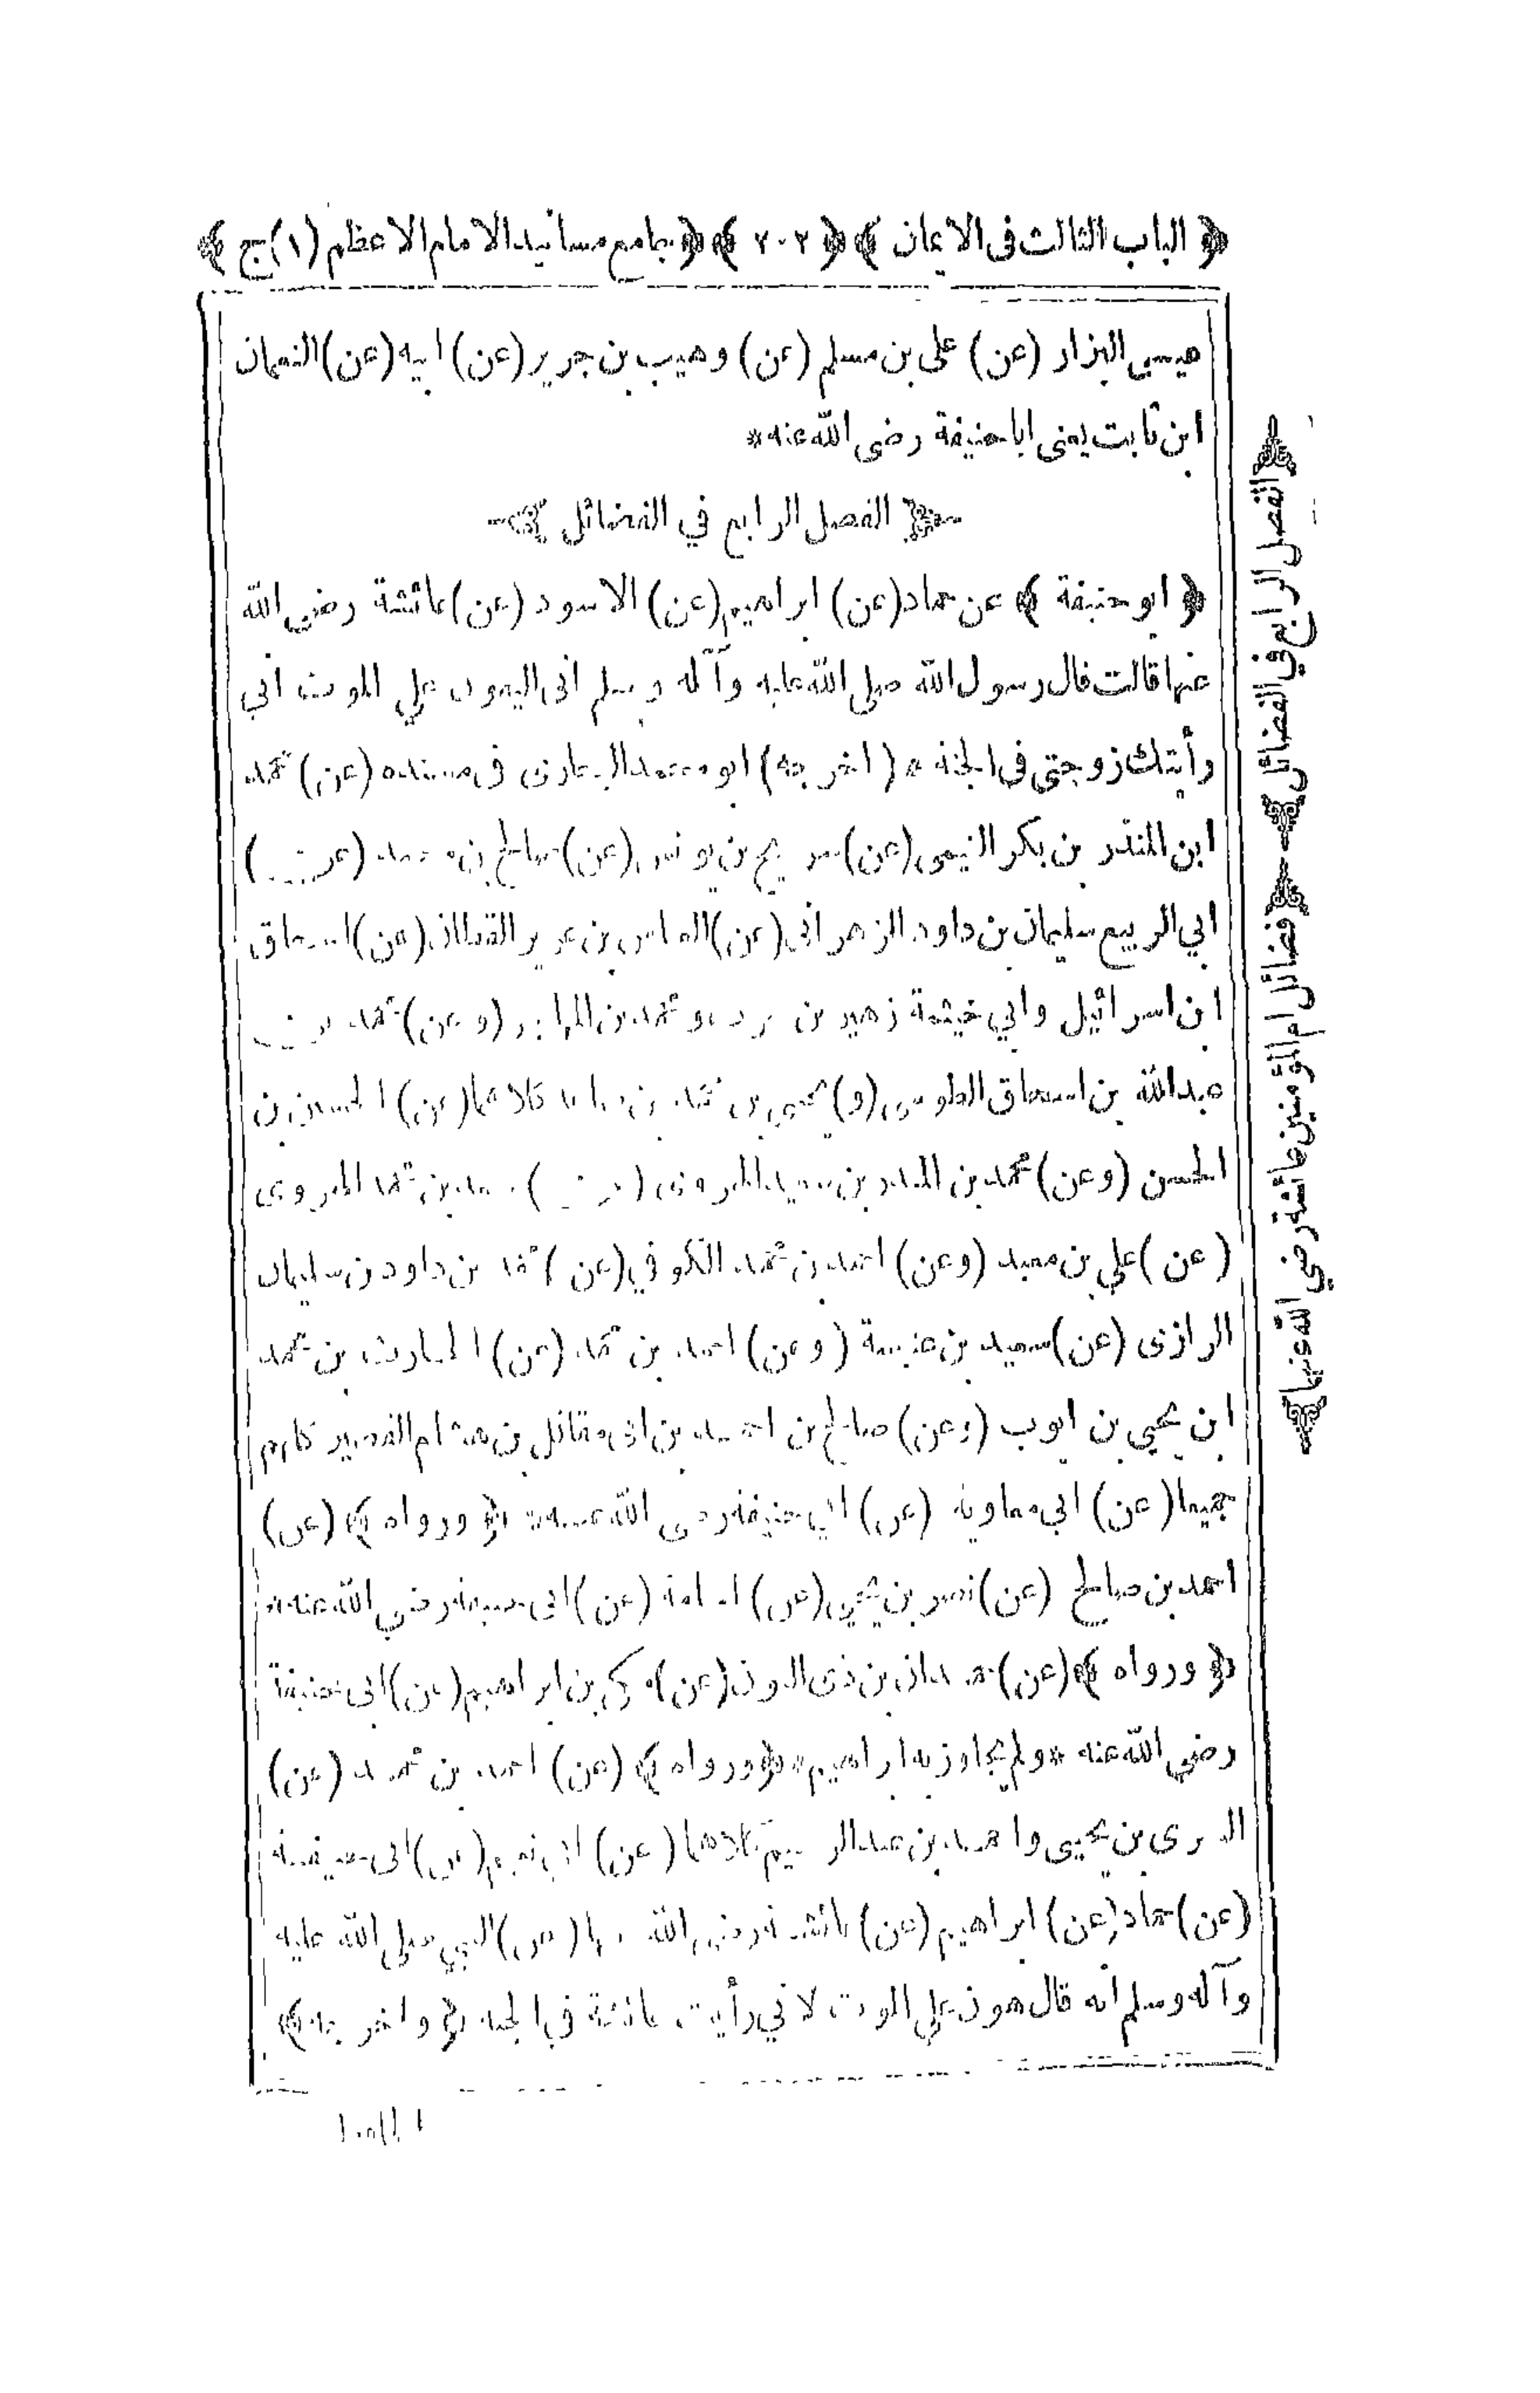 ﴿ الباب الثالث فى الايمان ﴾ ﴿ ٢٠٢ ﴾ ﴿ جامع مسانيد الامام الاعظم (١) ج ﴾
عيسى البزار (عن) على بن مسلم (عن) وهيب بن جرير (عن) ابيه (عن) النعمان
ابن ثابت يعنى ابا حنيفة رضى الله عنه *
الفصل الرابع في الفضائل
﴿ ابو حنيفة ﴾ عن حماد (عن) ابراهيم (عن) الاسود (عن) عائشة رضي الله
عنها قالت قال رسول الله صلى الله عليه وآله وسلم انى ليهون علي الموت اني
رأيتك زوجتى فى الجنة * (اخرجه) ابو محمد البخارى فى مسنده (عن) محمد
ابن المنذر بن بكر (عن) سريج بن يونس (عن) صالح بن محمد (عن)
ابي الربيع سليمان بن داود الزهرانى (عن) القطان (عن) اسحاق
ابن اسرائيل وابي خيثمة زهير بن ومحمد بن (وعن) محمد بن
عبدالله بن اسحاق الطوسى (و) يحيى بن محمد بن كلاهما (عن) الحسين بن
الحسن (وعن) محمد بن المنذر بن سعيد الهروى (عن) بن محمد الهروى
(عن) علي بن معبد (وعن) احمد بن محمد الكوفي (عن) محمد بن داود بن سليمان
الرازى (عن) سعيد بن عنبسة (وعن) احمد بن محمد (عن) الحارث بن محمد
ابن يحيى بن ايوب (وعن) صالح بن احمد بن ابى مقاتل بن هشام القصير كلهم
جميعا (عن) ابى معاوية (عن) ابي حنيفة رضى الله عنه * ﴿ ورواه ﴾ (عن)
احمد بن صالح (عن) نصر بن يحيى (عن) (عن) ابى حنيفة رضي الله عنه *
﴿ ورواه ﴾ (عن) حمدان بن ذى النون (عن) مكى بن ابراهيم (عن) ابى حنيفة
رضي الله عنه * ولم يجاوز به ابراهيم * ﴿ ورواه ﴾ (عن) احمد بن محمد (عن)
السرى بن يحيى واحمد بن عبدالرحيم كلاهما (عن) ابى نعيم (عن) ابى حنيفة
(عن) حماد (عن) ابراهيم (عن) عائشة رضي الله عنها (عن) النبي صلى الله عليه
وآله وسلم انه قال هون علي الموت لاني رأيت عائشة في الجنة ﴿ واخرجه ﴾
الفصل الرابع في الفضائل
فضائل ام المؤمنين عائشة رضي الله عنها